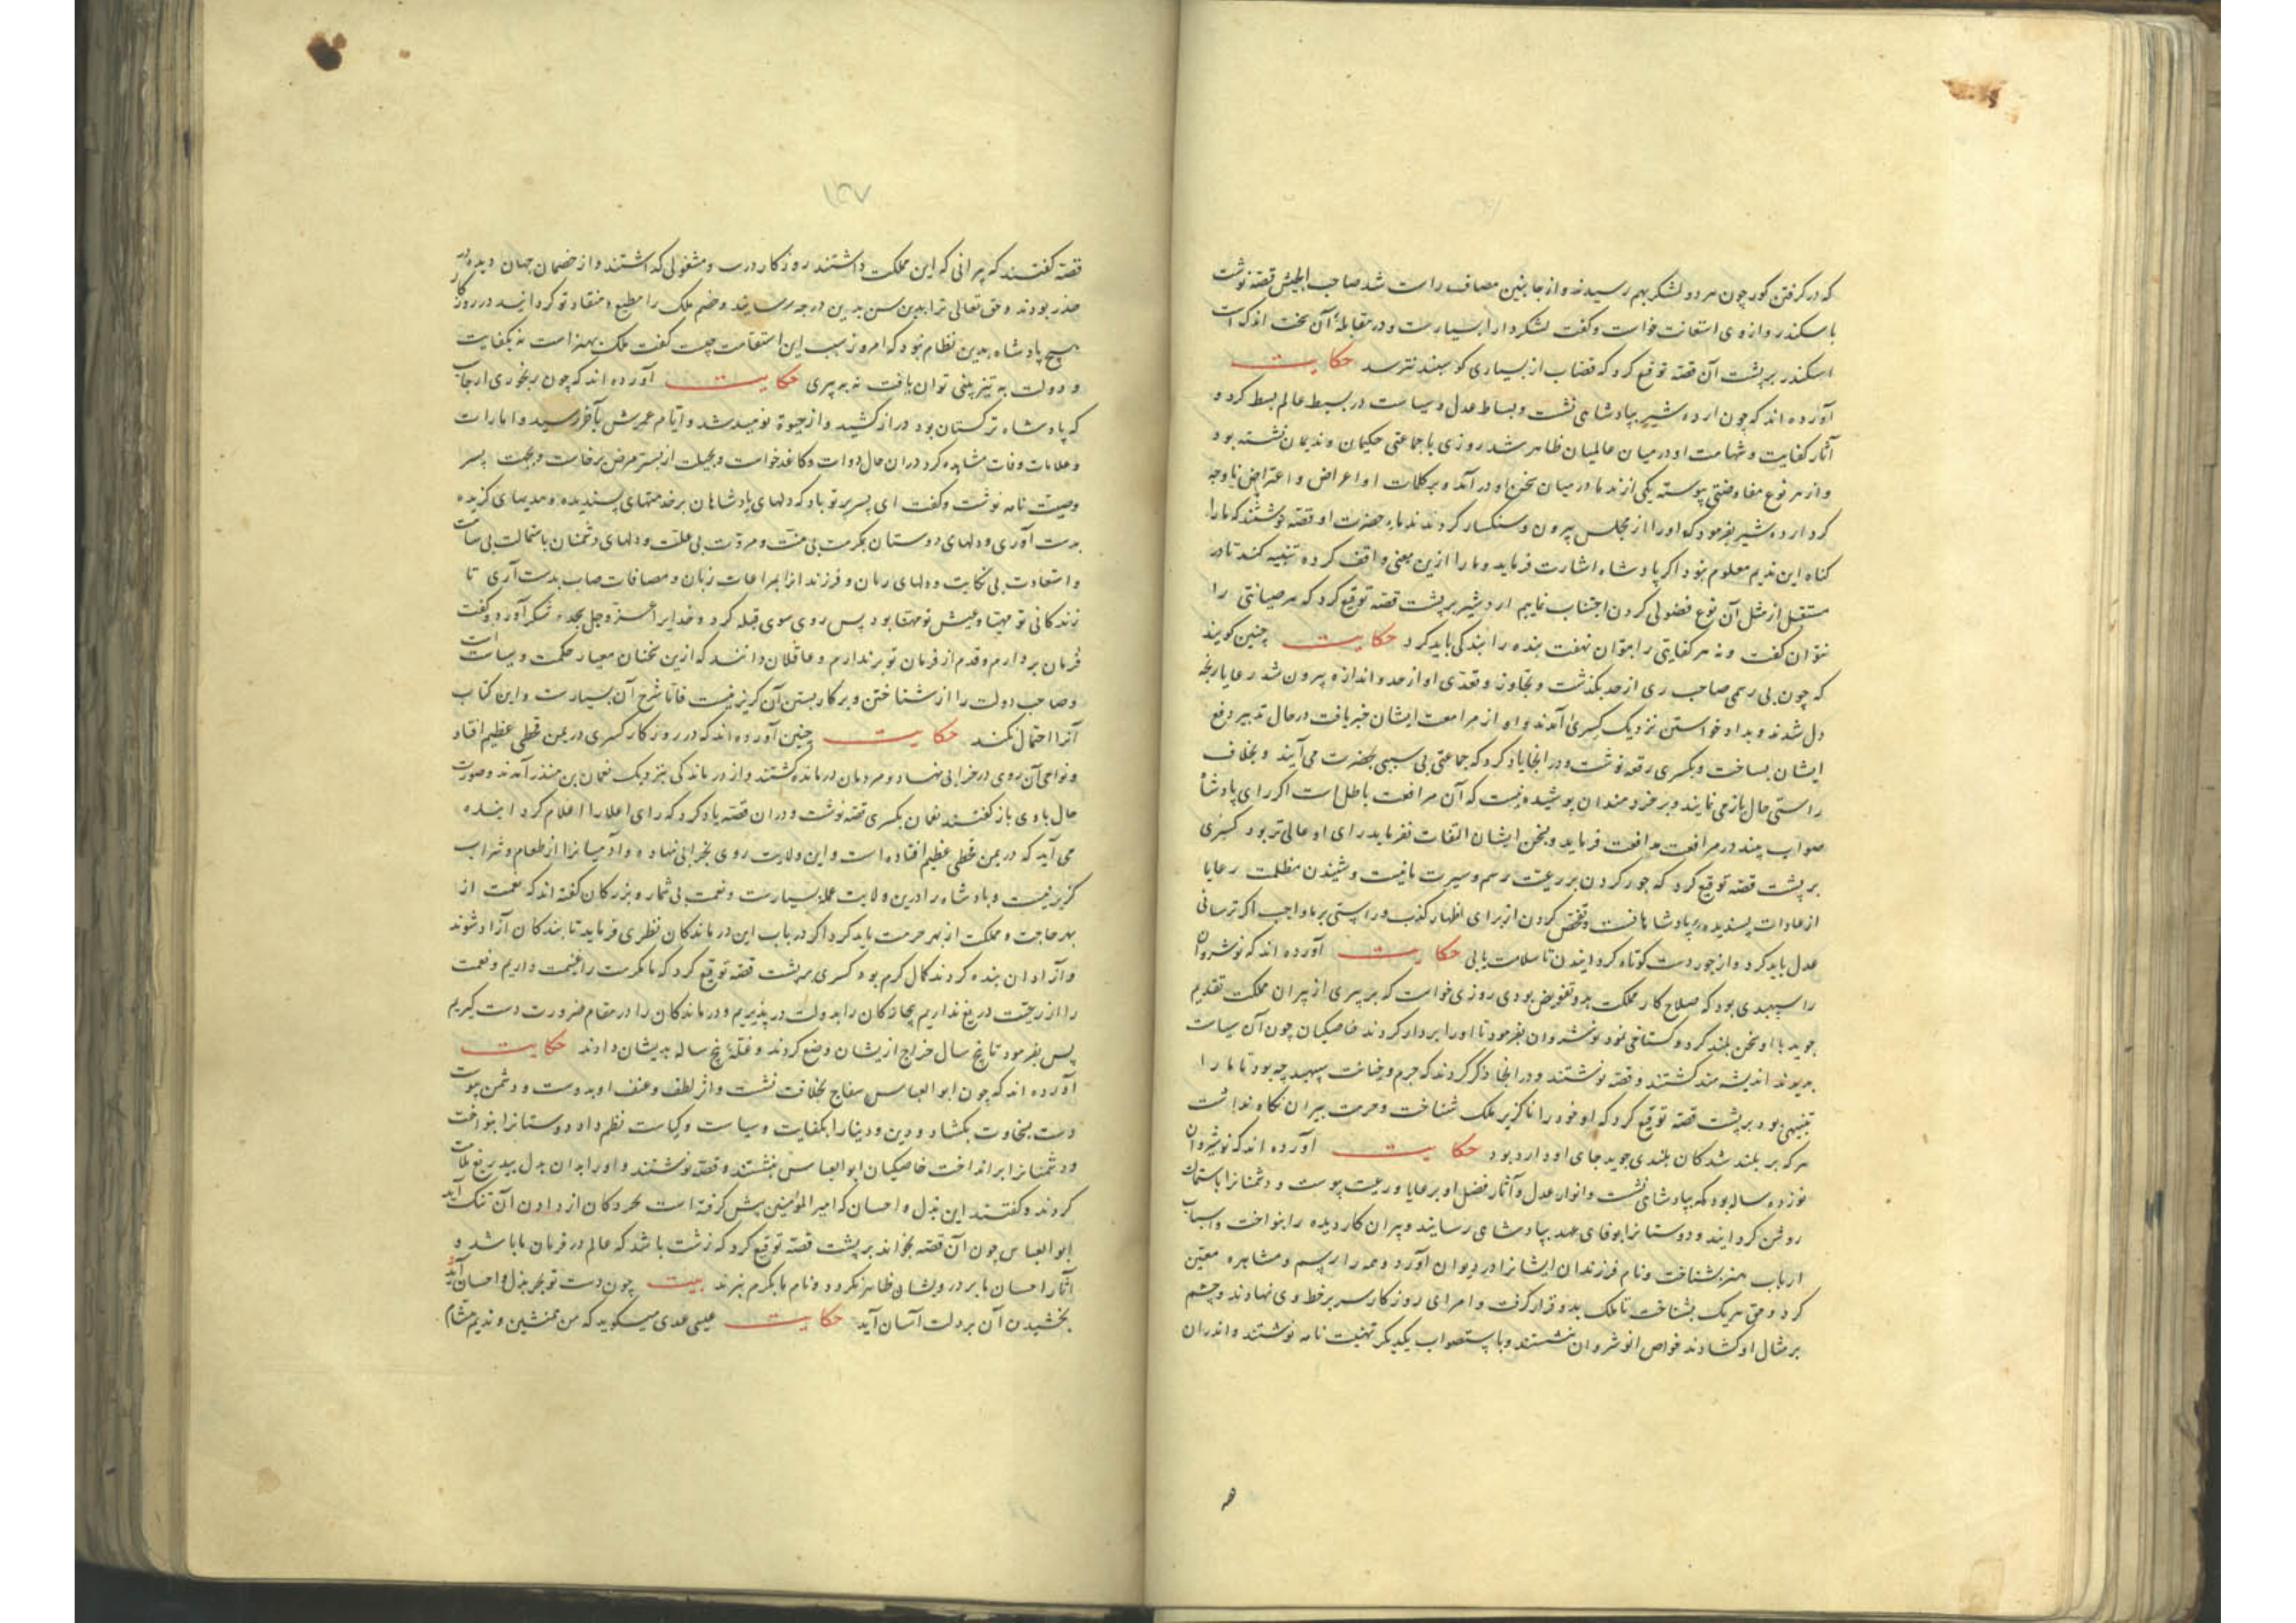 که در گرفتن کور چون هر دو لشکر بهم رسیدند و از جانبین مصاف راست شد صاحب الجیش قصه نوشت
باسکندر و از وی استعانت خواست و گفت لشکر دارا بسیارست و در مقابله آن سخت اندک است
اسکندر بر پشت آن قصه توقیع کرد که قصاب از بسیاری گوسپند نترسد حکایت
آورده اند که چون اردشیر بپادشاهی نشست و بساط عدل و سیاست در بسیط عالم بسط کرد و
آثار کفایت و شهامت او در میان عالمیان ظاهر شد روزی با جماعتی حکیمان و ندیمان نشسته بود
و از هر نوع مفاوضتی پیوسته یکی از ندما در میان سخن او در آمد و بر کلمات او اعراض و اعتراض ناوجه
کرد اردشیر بفرمود که او را از مجلس بیرون و سنگسار کردند ندماء حضرت او قصه نوشتند که ما را
گناه این ندیم معلوم نبود اگر پادشاه اشارت فرماید و ما را ازین معنی واقف کرده تنبیه کند تا در
مستقبل از مثل آن نوع فضولی کردن اجتناب نماییم اردشیر بر پشت قصه توقیع کرد که هر صیانتی را
نتوان گفت و نه هر کفایتی را بتوان نهفت بنده را بندگی باید کرد حکایت چنین گویند
که چون بی رسمی صاحب ری از حد بگذشت و تجاوز و تعدی او از حد و اندازه بیرون شد رعایا رنجه
دل شدند و بداد خواستن نزدیک کسری آمدند و او از مرافعت ایشان خبر یافت در حال تدبیر دفع
ایشان بساخت و بکسری رقعه نوشت و در انجا یاد کرد که جماعتی بی سببی بحضرت می آیند و بخلاف
راستی حال باز می نمایند و بر خردمندان پوشیده نیست که آن مرافعت باطل است اگر رای پادشاه
صواب بیند در مرافعت مدافعت فرماید و بسخن ایشان التفات نفرماید رای او عالی تر بود کسری
بر پشت قصه توقیع کرد که جور کردن بر رعیت رسم و سیرت ما نیست و شنیدن مظلمت رعایا
از عادات پسندیده پادشاهانست و تفحص کردن از برای اظهار کذب و راستی بر ما واجب اگر ترسانی
عدل باید کرد و از جور دست کوتاه گردانیدن تا سلامت یابی حکایت آورده اند که نوشروان
را سپهبدی بود که صلاح کار مملکت بدو تفویض بودی روزی خواست که بر پیری از پیران مملکت تقدیم
جوید با او سخن بلند کرد و گستاخی نمود نوشروان بفرمود تا او را بردار کردند خاصگیان چون آن سیاست
بدیدند اندیشه مند گشتند و قصه نوشتند و در انجا ذکر کردند که جرم و خیانت سپهبد چه بود تا ما را
تنبیهی بود بر پشت قصه توقیع کرد که او خود را ناگزیر ملک شناخت و حرمت پیران نگاه نداشت
هر که بر بلند شدگان بلندی جوید جای او دار بود حکایت آورده اند که نوشروان
نوزده ساله بود که بپادشاهی نشست و انوار عدل و آثار فضل او بر رعایا و رعیت پیوست و دشمنانرا باستمالت
روشن گردانید و دوستانرا بوفای عهد بپادشاهی رسانید و پیران کار دیده را بنواخت و اسباب
ارباب هنر بشناخت و نام فرزندان ایشانرا در دیوان آورد و همه را رسم و مشاهره معین
کرد و حق هر یک بشناخت تا ملک بدو قرار گرفت و امرای روزگار سر بر خط وی نهادند و چشم
بر مثال او گشادند خواص انوشروان بنشستند و باستصواب یکدیگر تهنیت نامه نوشتند و اندران
قصه گفتند که پیرانی که این مملکت داشتند روزگار در تب و مشغولی گذاشتند و از خصمان جهان دیده در
حذر بودند و حق تعالی ترا بدین سن بدین درجه رسانید و خصم ملک را مطیع و منقاد تو گردانید در روزگار
هیچ پادشاه بدین نظام نبود که امروز سبب این استقامت چیست گفت ملک بهنر است نه بکفایت
و دولت به تیز بینی توان یافت نه به پیری حکایت آورده اند که چون رنجوری ارجاسب
که پادشاه ترکستان بود دراز کشید و از حیوة نومید شد و ایام عمرش بآخر رسید و امارات
و علامات وفات مشاهده کرد در ان حال دوات و کاغذ خواست و بحیلت از بستر مرض برخاست و بجهت پسر
وصیت نامه نوشت و گفت ای پسر بر تو باد که دلهای پادشاهان بر خدمتهای پسندیده و هدیهای گزیده
بدست آوری و دلهای دوستان بمکرمت بی منت و مروت بی علت و دلهای دشمنان باستمالت بی سآمت
و استعادت بی نکایت و دلهای زنان و فرزندانرا بمراعات زبان و مصافات صاب بدست آری تا
زندگانی تو مهیا و عیش تو مهنا بود پس روی سوی قبله کرد و خدایرا عز و جل سجده شکر آورد و گفت
فرمان بردارم و قدم از فرمان تو برندارم و عاقلان دانند که ازین سخنان معیار حکمت و سیاست است
و صاحب دولت را از شناختن و بر کار بستن آن گریز نیست فاما شرح آن بسیارست و این کتاب
آنرا احتمال نکند حکایت چنین آورده اند که در روزگار کسری در یمن قحطی عظیم افتاد
و نواحی آن روی در خرابی نهاد و مردمان درمانده گشتند و از درماندگی بنزدیک نعمان بن منذر آمدند و صورت
حال با وی باز گفتند نعمان بکسری قصه نوشت و در ان قصه یاد کرد که رای اعلا را اعلام گردانیده
می آید که در یمن قحطی عظیم افتاده است و این ولایت روی بخرابی نهاده و آدمیانرا از طعام و شراب
گزیر نیست و پادشاه را درین ولایت غله بسیارست و نعمت بی شمار و بزرگان گفته اند که نعمت از
بهر حاجت و مملکت از بهر حرمت باید کرد اگر در باب این درماندگان نظری فرماید تا بندگان آزاد شوند
و آزادان بنده گردند کمال کرم بود کسری بر پشت قصه توقیع کرد که ما مکرمت را غنیمت داریم و نعمت
را از رعیت دریغ نداریم بیچارگان را بدولت در پذیریم و درماندگان را در مقام ضرورت دست گیریم
پس بفرمود تا پنج سال خراج از یشان وضع کردند و غله پنج ساله بدیشان دادند حکایت
آورده اند که چون ابو العباس سفاح بخلافت نشست و اثر لطف و عنف او بدوست و دشمن پیوست
دست بسخاوت بگشاد و دین و دینار را بکفایت و سیاست و کیاست نظم داد دوستانرا بنواخت
و دشمنانرا برانداخت خاصگیان ابو العباس بنشستند و قصه نوشتند و او را بدان بذل بیدریغ ملامت
کردند و گفتند این بذل و احسان که امیر المؤمنین پیش گرفته است بحر و کان از دادن آن تنگ آید
ابو العباس چون آن قصه بخواند بر پشت قصه توقیع کرد که زشت باشد که عالم در فرمان ما باشد و
آثار احسان ما بر درویشان ظاهر نگردد و نام ما بکرم نبرند بیت چون دست تو بحر بذل و احسان آید
بخشیدن آن بر دلت آسان آید حکایت عیسی عدی میگوید که من همنشین و ندیم هشام